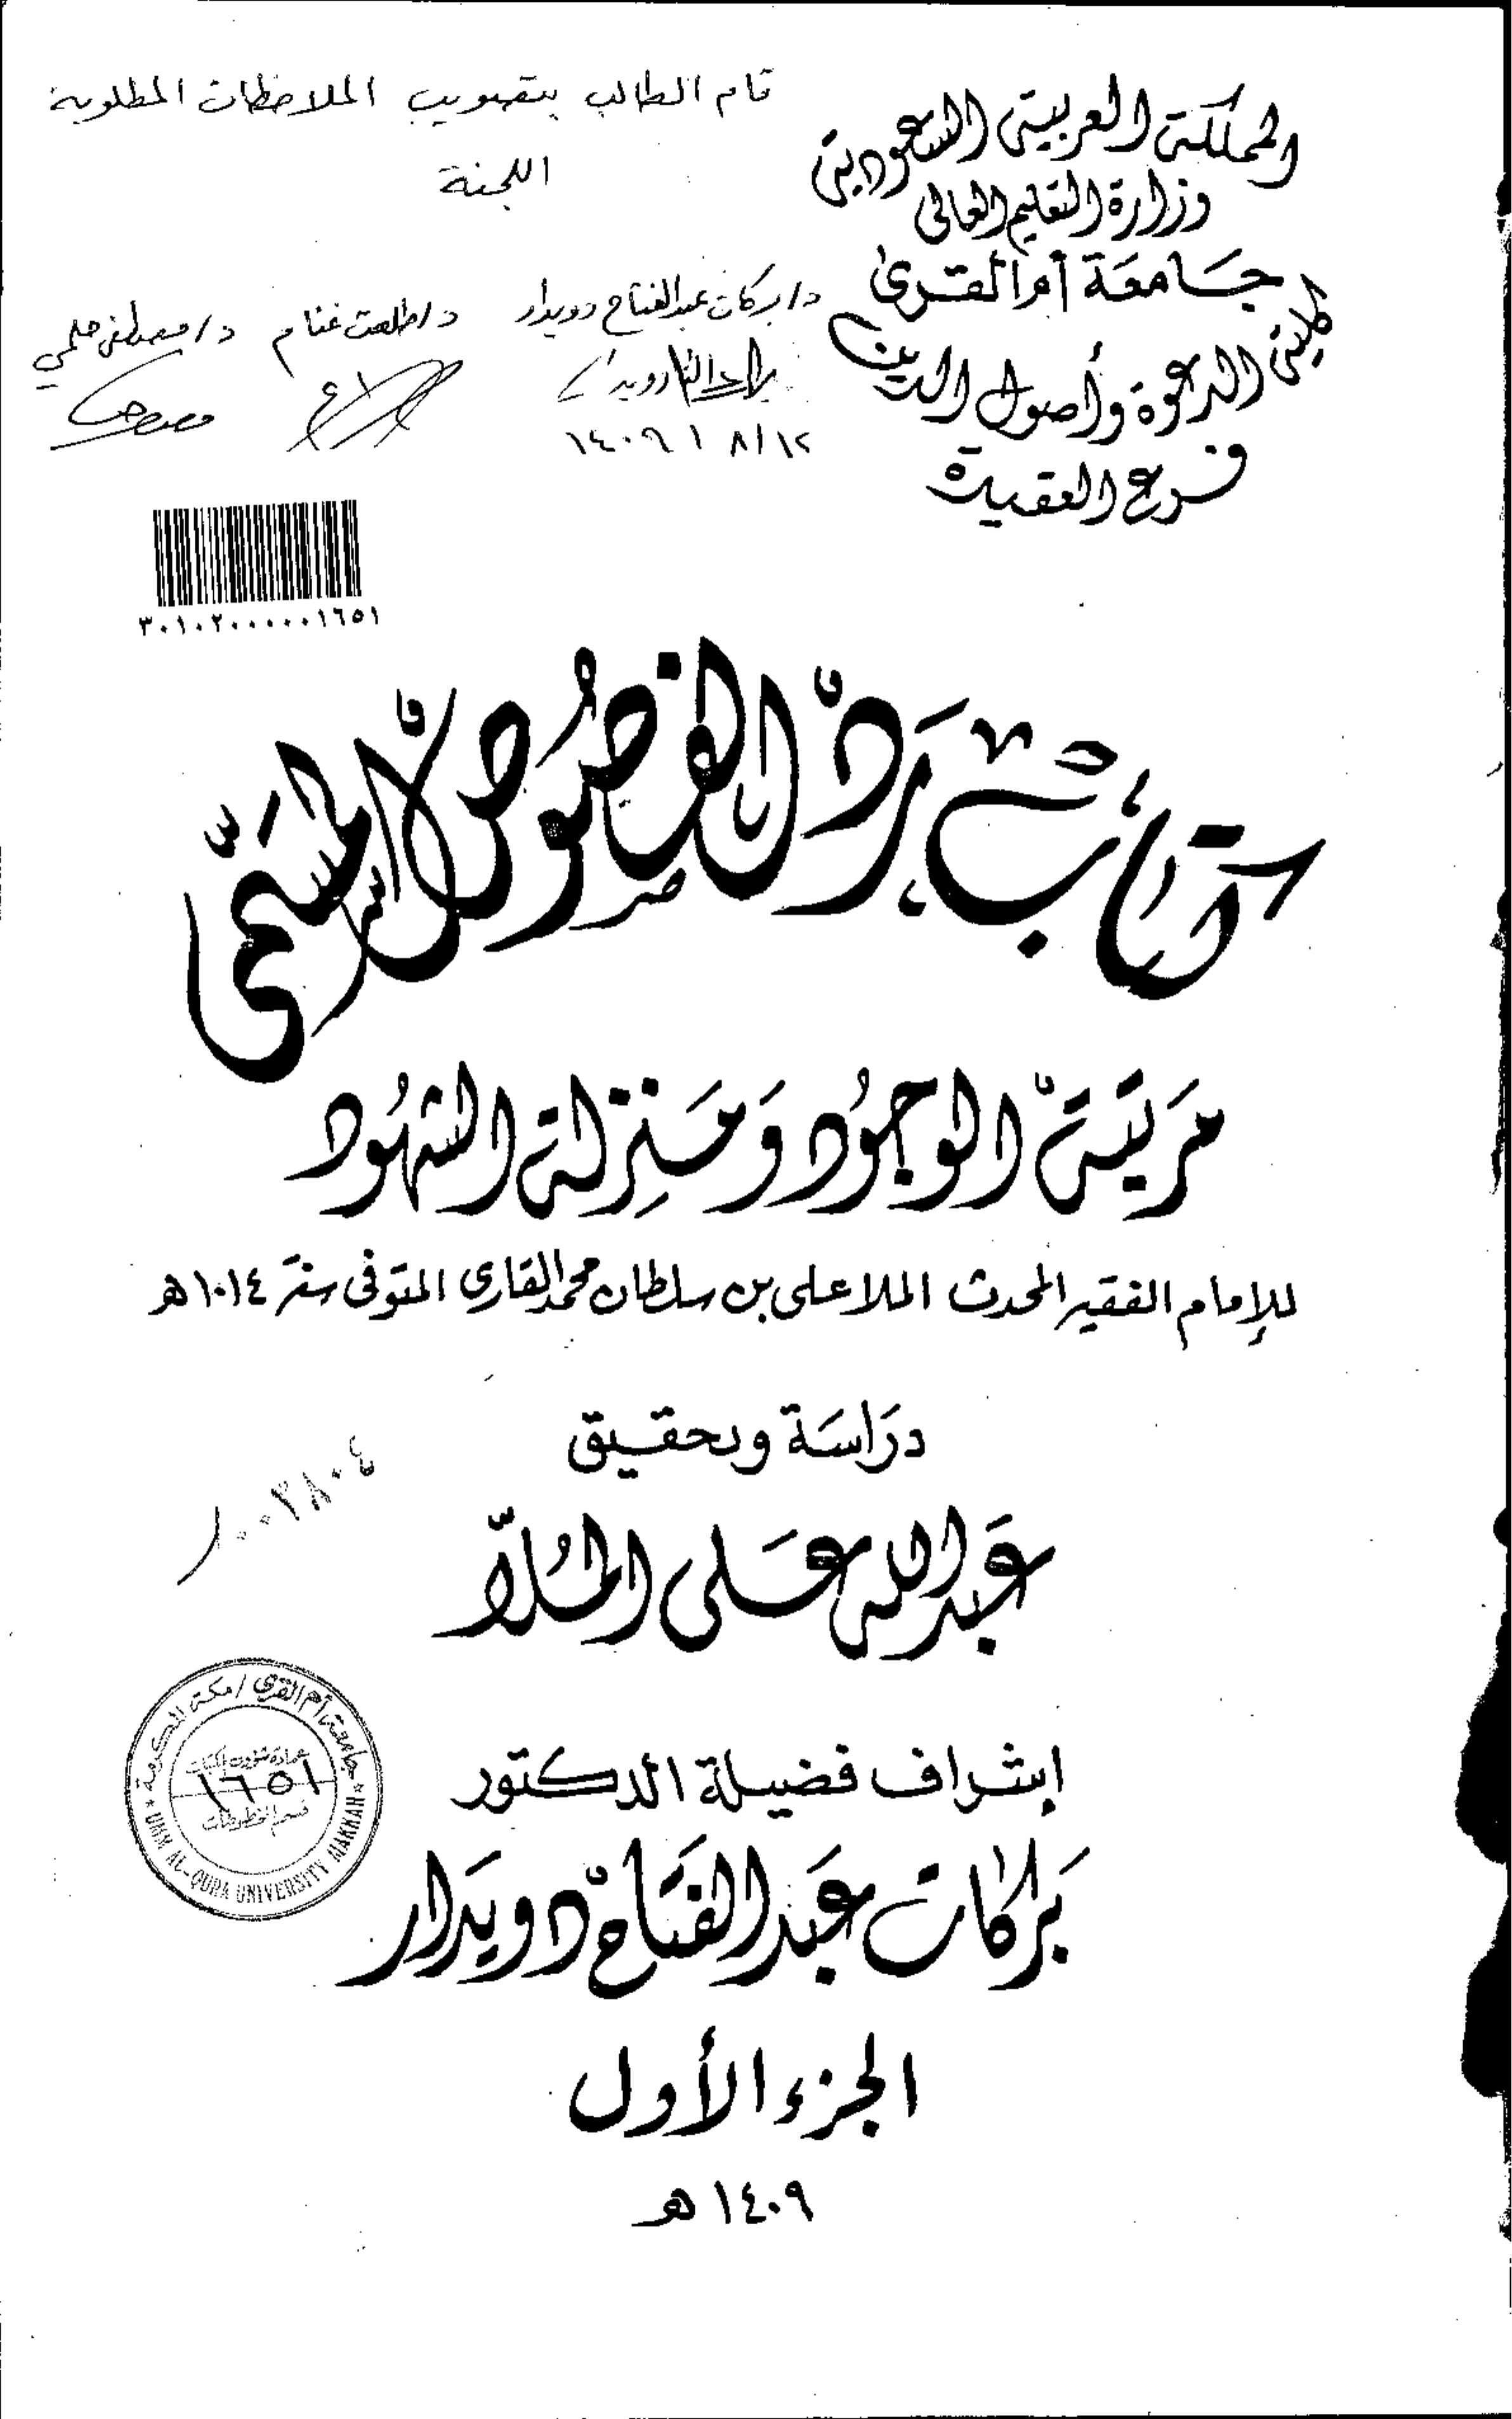 المملكة العربية السعودية
وزارة التعليم العالى
جامعة أم القرى
كلية الدعوة وأصول الدين
فرع العقيدة
قام الطالب بتصويب الملاحظات المطلوبة
اللجنة
د/بركات عبدالفتاح دويدار د/طلعت غنام د/مصطفى حلمي
١٤٠٩/٨/١٢
٣٠١٠٢٠٠٠٠٠١٦٥١
كتاب رد الفصوص المسمى
مرتبة الوجود ومنزلة الشهود
للإمام الفقيه المحدث الملا على بن سلطان محمد القارى المتوفى سنة ١٠١٤ هـ
دراسة وتحقيق
عبد الله على الملا
جامعة أم القرى / مكة المكرمة
١٦٥١
قسم المخطوطات
UMM AL-QURA UNIVERSITY MAKKAH
إشراف فضيلة الدكتور
بركات عبد الفتاح دويدار
الجزء الأول
١٤٠٩ هـ